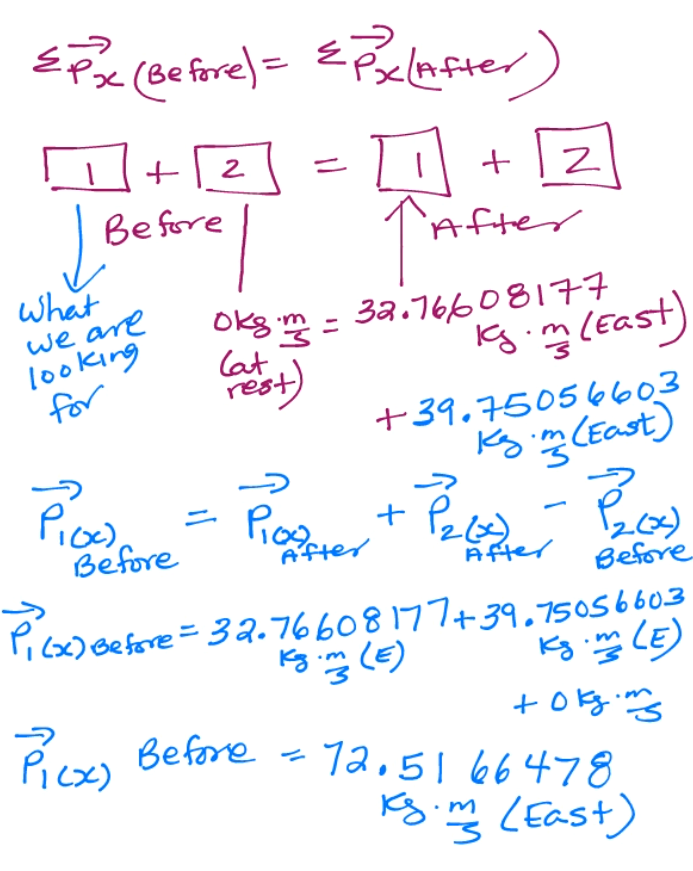 ΣP⃗x (Before) = ΣP⃗x (After)
1 + 2 = 1 + 2
Before After
what we are looking for
0 kg·m/s (at rest) = 32.76608177 kg·m/s (East)
+ 39.75056603 kg·m/s (East)
P⃗1(x) Before = P⃗1(x) After + P⃗2(x) After - P⃗2(x) Before
P⃗1(x) Before = 32.76608177 kg·m/s (E) + 39.75056603 kg·m/s (E)
+ 0 kg·m/s
P⃗1(x) Before = 72.5166478
kg·m/s (East)